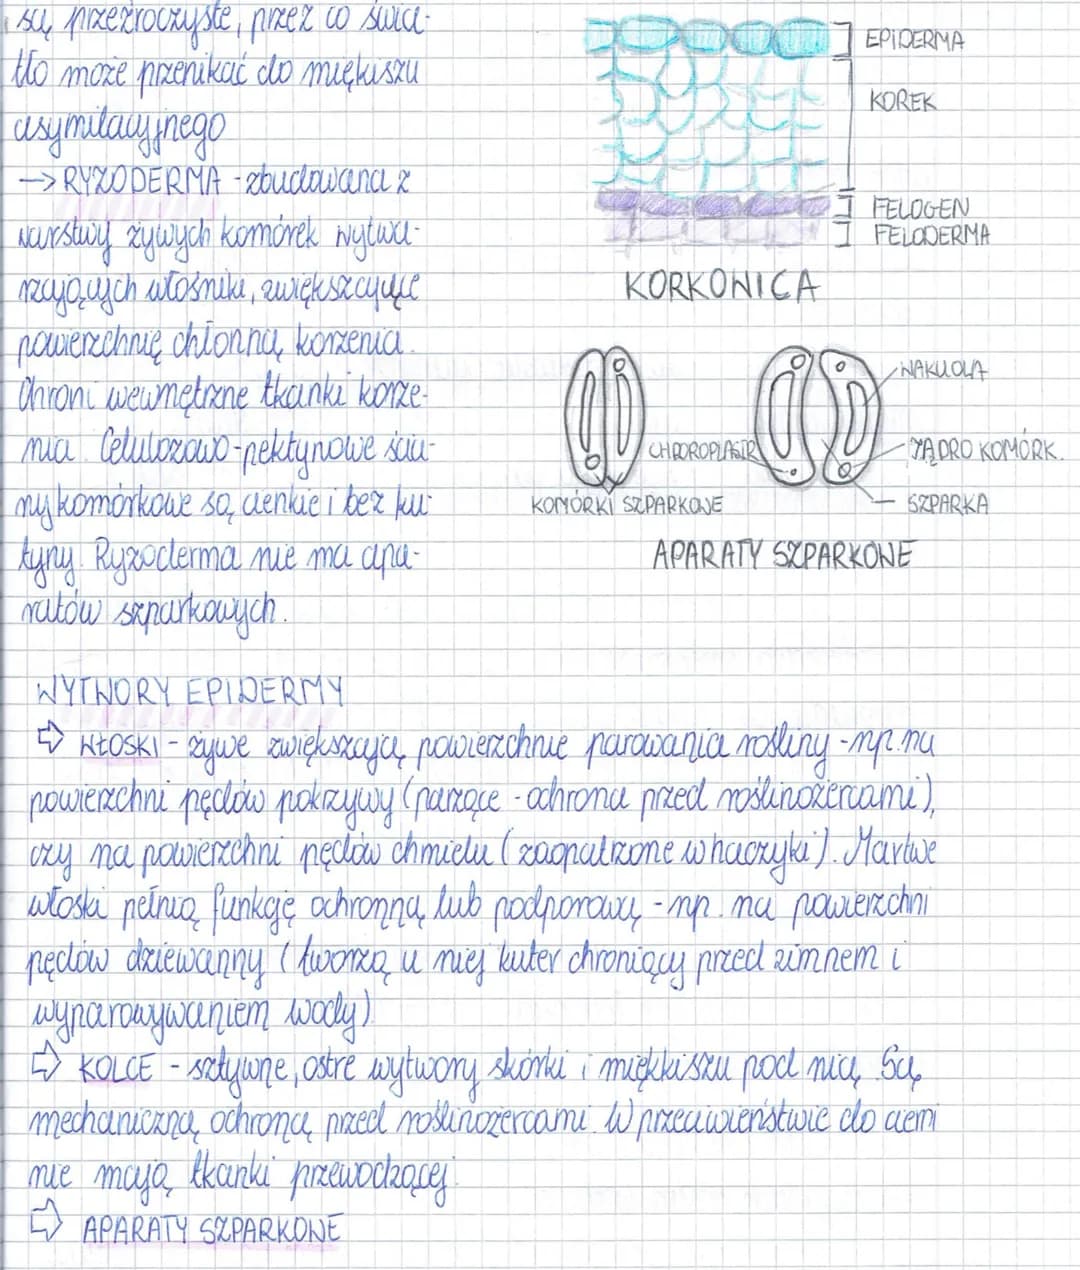 są przezroczyste, przez co świa-
tło może przenikać do miękiszu
asymilacyjnego
→ RYZODERMA - zbudowana z
warstwy żywych komórek wytwa-
rzających włośniki, zwiększające
powierzchnię chłonną korzenia.
Chroni wewnętrzne tkanki korze-
nia. Celulozowo-pektynowe ścia-
ny komórkowe są cienkie i bez ku-
tyny. Ryzoderma nie ma apa-
ratów szparkowych.
EPIDERMA
KOREK
FELOGEN
FELODERMA
KORKOWICA
WAKUOLA
CHLOROPLASTR
JĄDRO KOMÓRK.
KOMÓRKI SZPARKOWE
SZPARKA
APARATY SZPARKOWE
WYTWORY EPIDERMY
⇨ WŁOSKI - żywe zwiększają powierzchnie parowania rośliny - np. na
powierzchni pędów pokrzywy (parzące - ochrona przed roślinożercami),
czy na powierzchni pędów chmielu (zaopatrzone w haczyki). Martwe
włoski pełnią funkcję ochronną lub podporową - np. na powierzchni
pędów dziewanny (tworzą u niej kuter chroniący przed zimnem i
wyparowywaniem wody)
⇨ KOLCE - sztywne, ostre wytwory skórki i miękkiszu pod nią. Są
mechaniczną ochroną przed roślinożercami. W przeciwieństwie do cierni
nie mają tkanki przewodzącej.
⇨ APARATY SZPARKOWE